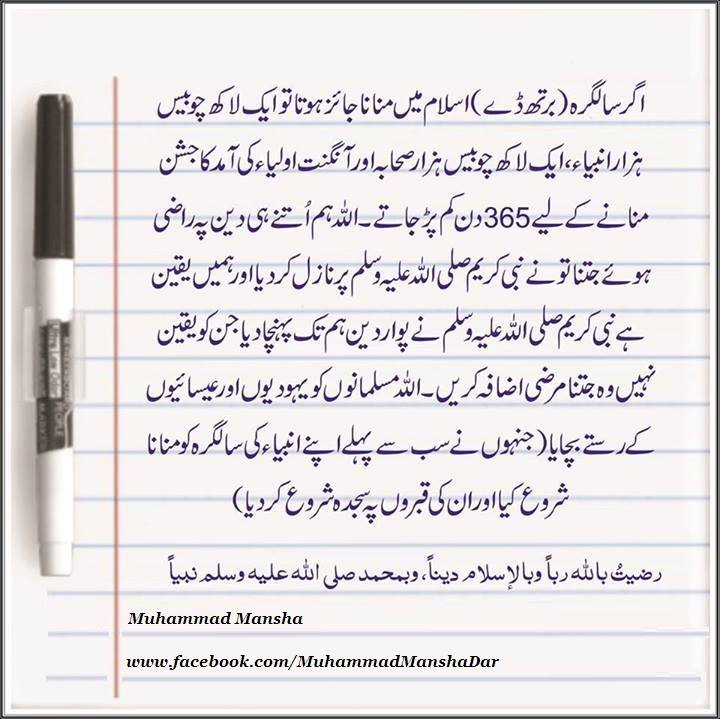 اگر سالگرہ (برتھ ڈے) اسلام میں منانا جائز ہوتا تو ایک لاکھ چوبیس
ہزار انبیاء، ایک لاکھ چوبیس ہزار صحابہ اور آنگنت اولیاء کی آمد کا جشن
منانے کے لیے 365 دن کم پڑ جاتے۔ اللہ ہم اُتنے ہی دین پہ راضی
ہوئے جتنا تو نے نبی کریم صلی اللہ علیہ وسلم پر نازل کر دیا اور ہمیں یقین
ہے نبی کریم صلی اللہ علیہ وسلم نے پوار دین ہم تک پہنچا دیا جن کو یقین
نہیں وہ جتنا مرضی اضافہ کریں۔ اللہ مسلمانوں کو یہودیوں اور عیسائیوں
کے رستے بچایا (جنہوں نے سب سے پہلے اپنے انبیاء کی سالگرہ کو منانا
شروع کیا اور ان کی قبروں پہ سجدہ شروع کر دیا)
رضيتُ بالله رباً وبالإسلام ديناً، وبمحمد صلى الله عليه وسلم نبياً
Muhammad Mansha
www.facebook.com/MuhammadManshaDar